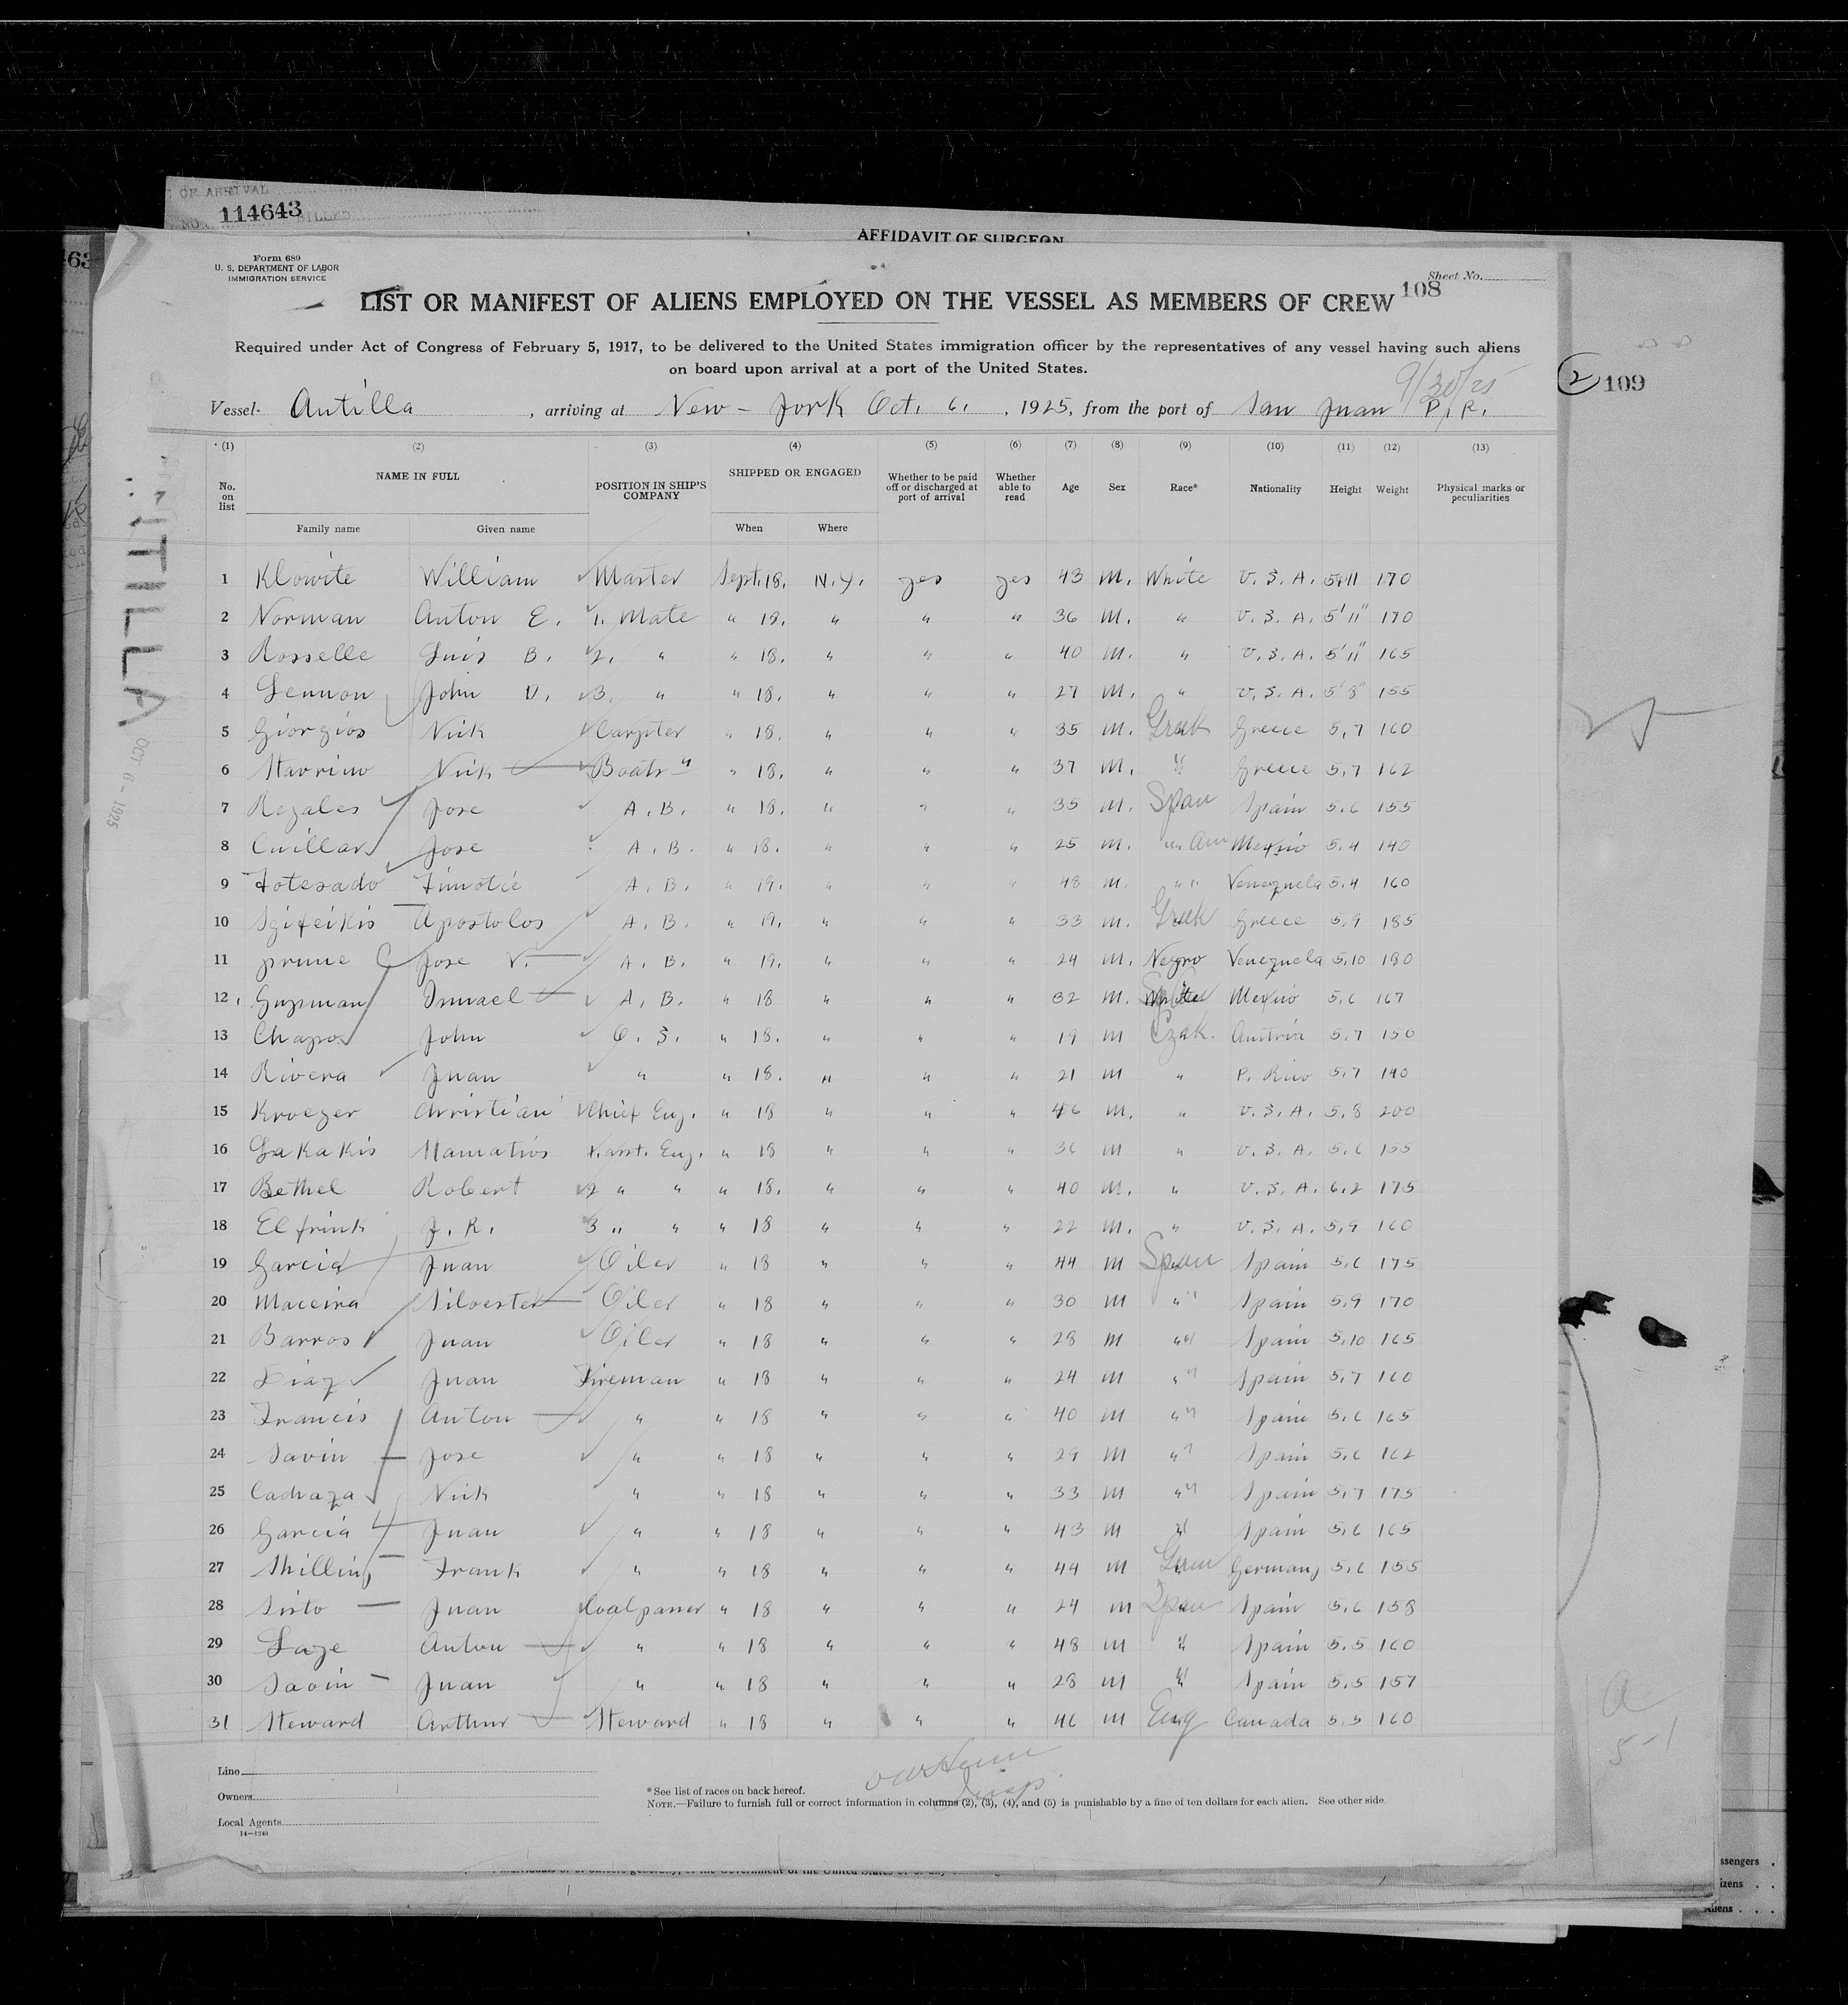 OF ARRIVAL
114643
NO. BILLED
AFFIDAVIT OF SURGEON
Form 680
U. S. DEPARTMENT OF LABOR
IMMIGRATION SERVICE
Sheet No.
108
LIST OR MANIFEST OF ALIENS EMPLOYED ON THE VESSEL AS MEMBERS OF CREW
Required under Act of Congress of February 5, 1917, to be delivered to the United States immigration officer by the representatives of any vessel having such aliens
on board upon arrival at a port of the United States.
9/30/25
2 109
Vessel Antilla, arriving at New-York Oct. 6., 1925, from the port of San Juan P. R.
(1) (2) (3) (4) (5) (6) (7) (8) (9) (10) (11) (12) (13)
No. on list NAME IN FULL POSITION IN SHIP'S COMPANY SHIPPED OR ENGAGED Whether to be paid off or discharged at port of arrival Whether able to read Age Sex Race* Nationality Height Weight Physical marks or peculiarities
Family name Given name When Where
ANTILLA
OCT 6 - 1925
1 Klowite William Master Sept. 18. N.Y. yes yes 43 M. White U. S. A. 5'11 170
2 Norman Anton E. 1. Mate " 18. " " " 36 M. " U. S. A. 5'11" 170
3 Rosselle Luis B. 2. " " 18. " " " 40 M. " U. S. A. 5'11" 165
4 Lennon John D. 3. " " 18. " " " 27 M. " U. S. A. 5'8" 155
5 Giorgios Nick Carpter " 18. " " " 35 M. Greek Greece 5,7 160
6 Stavrino Nick Boats " " 18. " " " 37 M. " Greece 5,7 162
7 Regales Jose A. B. " 18. " " " 35 M. Span Spain 5.6 155
8 Cuillar Jose A. B. " 18. " " " 25 M. " Am Mexico 5.4 140
9 A. B. " 19. " " " 48 M. " " Venezuela 5.4 160
10 Apostolos A. B. " 19. " " " 33 M. Greek Greece 5.9 185
11 prune Jose V. A. B. " 19. " " " 24 M. Negro Venezuela 5.10 180
12 Guzman Ismael A. B. " 18 " " " 32 M. Mexico 5.6 167
13 Chapo John O. S. " 18. " " " 19 M Czek. Austria 5.7 150
14 Rivera Juan " " 18. " " " 21 M " P. Rico 5.7 140
15 Kroeger Christian Chief Eng. " 18 " " " 46 M. " U. S. A. 5.8 200
16 Lakakis Stamatios 1. asst. Eng. " 18 " " " 36 M " U. S. A. 5.6 155
17 Bethel Robert 2 " " " 18. " " " 40 M. " U. S. A. 6.2 175
18 Elfrink J. R. 3 " " " 18 " " " 22 M. " U. S. A. 5.9 160
19 Garcia Juan Oiler " 18 " " " 44 M Span Spain 5.6 175
20 Maceira Silvester Oiler " 18 " " " 30 M " " Spain 5.9 170
21 Barros Juan Oiler " 18 " " " 28 M " " Spain 5.10 165
22 Diaz Juan Fireman " 18 " " " 24 M " " Spain 5.7 160
23 Francis Anton " " 18 " " " 40 M " " Spain 5.6 165
24 Savin Jose " " 18 " " " 29 M " " Spain 5.6 162
25 Cachaza Nick " " 18 " " " 33 M " " Spain 5.7 175
26 Garcia Juan " " 18 " " " 43 M " Spain 5.6 165
27 Shilling Frank " " 18 " " " 44 M Germ Germany 5.6 155
28 Sisto Juan Coalpasser " 18 " " " 24 M Span Spain 5.6 158
29 Laze Anton " " 18 " " " 48 M " Spain 5.5 160
30 Savin Juan " " 18 " " " 28 M " Spain 5.5 157
31 Steward Arthur Steward " 18 " " " 46 M Eng Canada 5.5 160
Line
Owners
Local Agents
14—1249
*See list of races on back hereof.
NOTE.—Failure to furnish full or correct information in columns (2), (3), (4), and (5) is punishable by a fine of ten dollars for each alien. See other side.
Insp.
a
5-1
ssengers
izens
Aliens